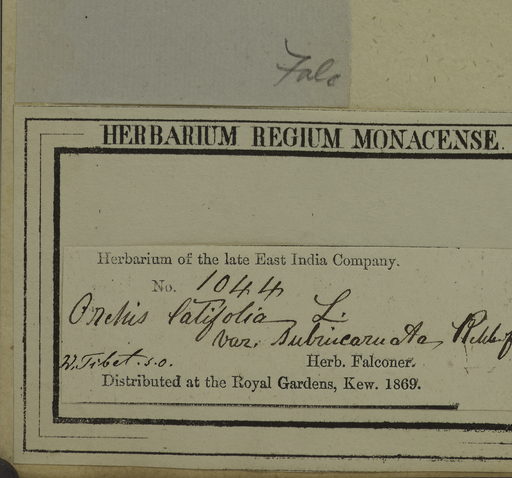 Falc
HERBARIUM REGIUM MONACENSE.
Herbarium of the late East India Company.
No. 1044
Orchis latifolia L.
var. subincarnata Rchb. f
W. Tibet. s.o.
Herb. Falconer.
Distributed at the Royal Gardens, Kew. 1869.